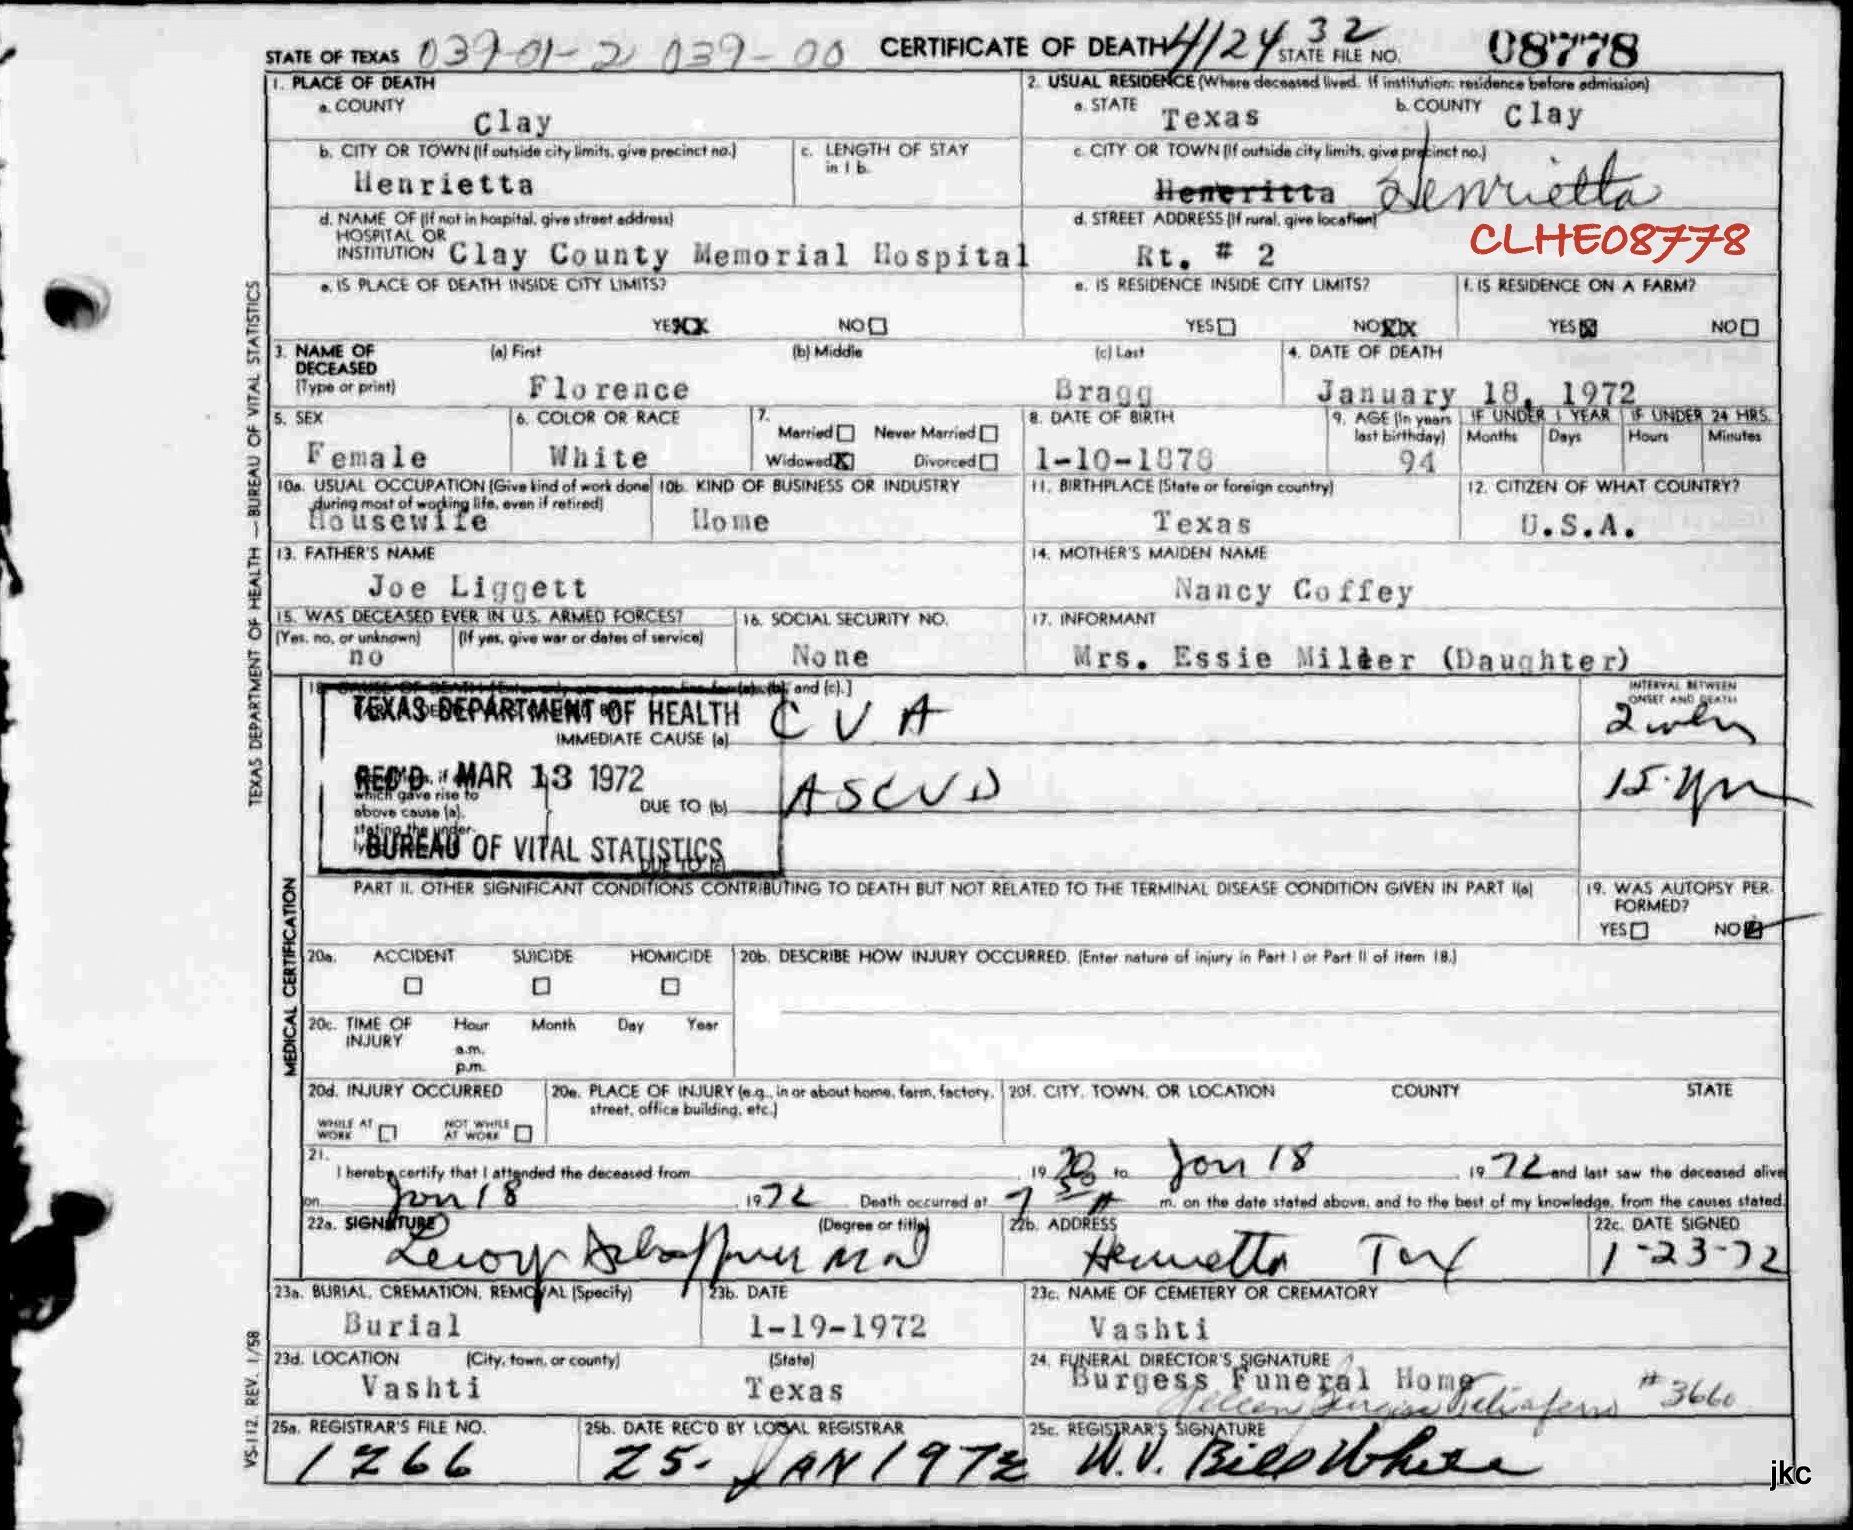 STATE OF TEXAS 039-01-2 039-00 CERTIFICATE OF DEATH 4/24 32 STATE FILE NO. 08778
1. PLACE OF DEATH
a. COUNTY
Clay
2. USUAL RESIDENCE (Where deceased lived. If institution: residence before admission)
a. STATE Texas b. COUNTY Clay
b. CITY OR TOWN (If outside city limits, give precinct no.)
Henrietta
c. LENGTH OF STAY
in 1 b.
c. CITY OR TOWN (If outside city limits, give precinct no.)
Heneritta Henrietta
d. NAME OF (If not in hospital, give street address)
HOSPITAL OR
INSTITUTION Clay County Memorial Hospital
d. STREET ADDRESS (If rural, give location)
Rt. # 2
CLHE08778
e. IS PLACE OF DEATH INSIDE CITY LIMITS?
YES XX NO
e. IS RESIDENCE INSIDE CITY LIMITS?
YES NO XX
f. IS RESIDENCE ON A FARM?
YES X NO
3. NAME OF
DECEASED
(Type or print)
(a) First (b) Middle (c) Last
Florence Bragg
4. DATE OF DEATH
January 18, 1972
5. SEX
Female
6. COLOR OR RACE
White
7.
Married Never Married
Widowed X Divorced
8. DATE OF BIRTH
1-10-1878
9. AGE (In years
last birthday)
94
IF UNDER 1 YEAR
Months Days
IF UNDER 24 HRS.
Hours Minutes
10a. USUAL OCCUPATION (Give kind of work done
during most of working life, even if retired)
Housewife
10b. KIND OF BUSINESS OR INDUSTRY
Home
11. BIRTHPLACE (State or foreign country)
Texas
12. CITIZEN OF WHAT COUNTRY?
U.S.A.
13. FATHER'S NAME
Joe Liggett
14. MOTHER'S MAIDEN NAME
Nancy Coffey
15. WAS DECEASED EVER IN U.S. ARMED FORCES?
(Yes, no, or unknown) (If yes, give war or dates of service)
no
16. SOCIAL SECURITY NO.
None
17. INFORMANT
Mrs. Essie Miller (Daughter)
18. CAUSE OF DEATH [Enter only one cause per line for (a), (b), and (c).]
INTERVAL BETWEEN
ONSET AND DEATH
TEXAS DEPARTMENT OF HEALTH
REC'D MAR 13 1972
BUREAU OF VITAL STATISTICS
IMMEDIATE CAUSE (a) CVA
which gave rise to
above cause (a),
stating the under-
DUE TO (b) ASCVD 15 yrs
DUE TO (c)
PART II. OTHER SIGNIFICANT CONDITIONS CONTRIBUTING TO DEATH BUT NOT RELATED TO THE TERMINAL DISEASE CONDITION GIVEN IN PART I(a)
19. WAS AUTOPSY PER-
FORMED?
YES NO
20a. ACCIDENT SUICIDE HOMICIDE
20b. DESCRIBE HOW INJURY OCCURRED. (Enter nature of injury in Part I or Part II of item 18.)
20c. TIME OF
INJURY
Hour Month Day Year
a.m.
p.m.
20d. INJURY OCCURRED
WHILE AT
WORK
NOT WHILE
AT WORK
20e. PLACE OF INJURY (e.g., in or about home, farm, factory,
street, office building, etc.)
20f. CITY, TOWN, OR LOCATION COUNTY STATE
21.
I hereby certify that I attended the deceased from 19 70 to Jan 18 19 72 and last saw the deceased alive
on Jan 18 19 72 Death occurred at 7 50 A m. on the date stated above, and to the best of my knowledge, from the causes stated.
22a. SIGNATURE (Degree or title)
Leroy Schaffner MD
22b. ADDRESS
Henrietta Tex
22c. DATE SIGNED
1-23-72
23a. BURIAL, CREMATION, REMOVAL (Specify)
Burial
23b. DATE
1-19-1972
23c. NAME OF CEMETERY OR CREMATORY
Vashti
23d. LOCATION (City, town, or county) (State)
Vashti Texas
24. FUNERAL DIRECTOR'S SIGNATURE
Burgess Funeral Home
# 3660
25a. REGISTRAR'S FILE NO.
1266
25b. DATE REC'D BY LOCAL REGISTRAR
25- JAN 1972
25c. REGISTRAR'S SIGNATURE
W.V. Bill White
TEXAS DEPARTMENT OF HEALTH — BUREAU OF VITAL STATISTICS
MEDICAL CERTIFICATION
VS-112 REV. 1/58
jkc